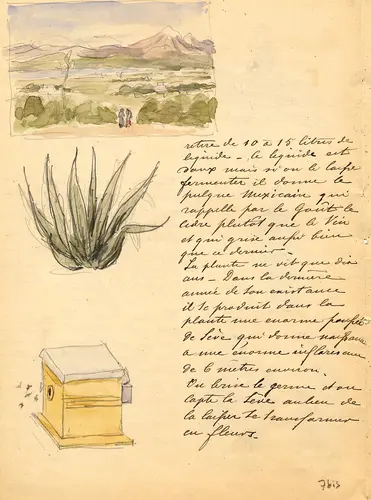 retire de 10 à 15 litres de
liquide - ce liquide est
doux mais si on le laisse
fermenter il donne le
pulque Mexicain qui
rappelle par le goût le
cidre plutot que le vin
et qui grise aussi bien
que ce dernier.
La plante ne vit que dix
ans - Dans la dernière
année de son existance
il se produit dans la
plante une énorme poussée
de sève qui donne naissance
a une énorme inflorescence
de 6 mètres environ.
On brise le germe et on
capte la sève au lieu de
la laisser se transformer
en fleurs.
7bis